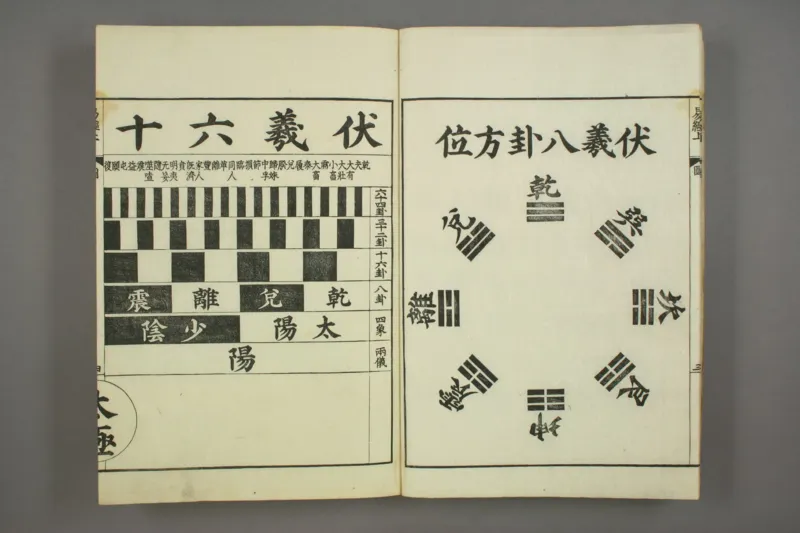 伏羲八卦方位
乾
兌
巽
離
坎
震
艮
坤
三
伏羲六十
乾 夬 大有 大壯 小畜 需 大畜 泰 履 兌 睽 歸妹 中孚 節 損 臨 同人 革 離 豐 家人 既濟 賁 明夷 无妄 隨 噬嗑 震 益 屯 頤 復
六十四卦
三十二卦
十六卦
八卦 乾 兌 離 震
四象 太陽 少陰
兩儀 陽
太極